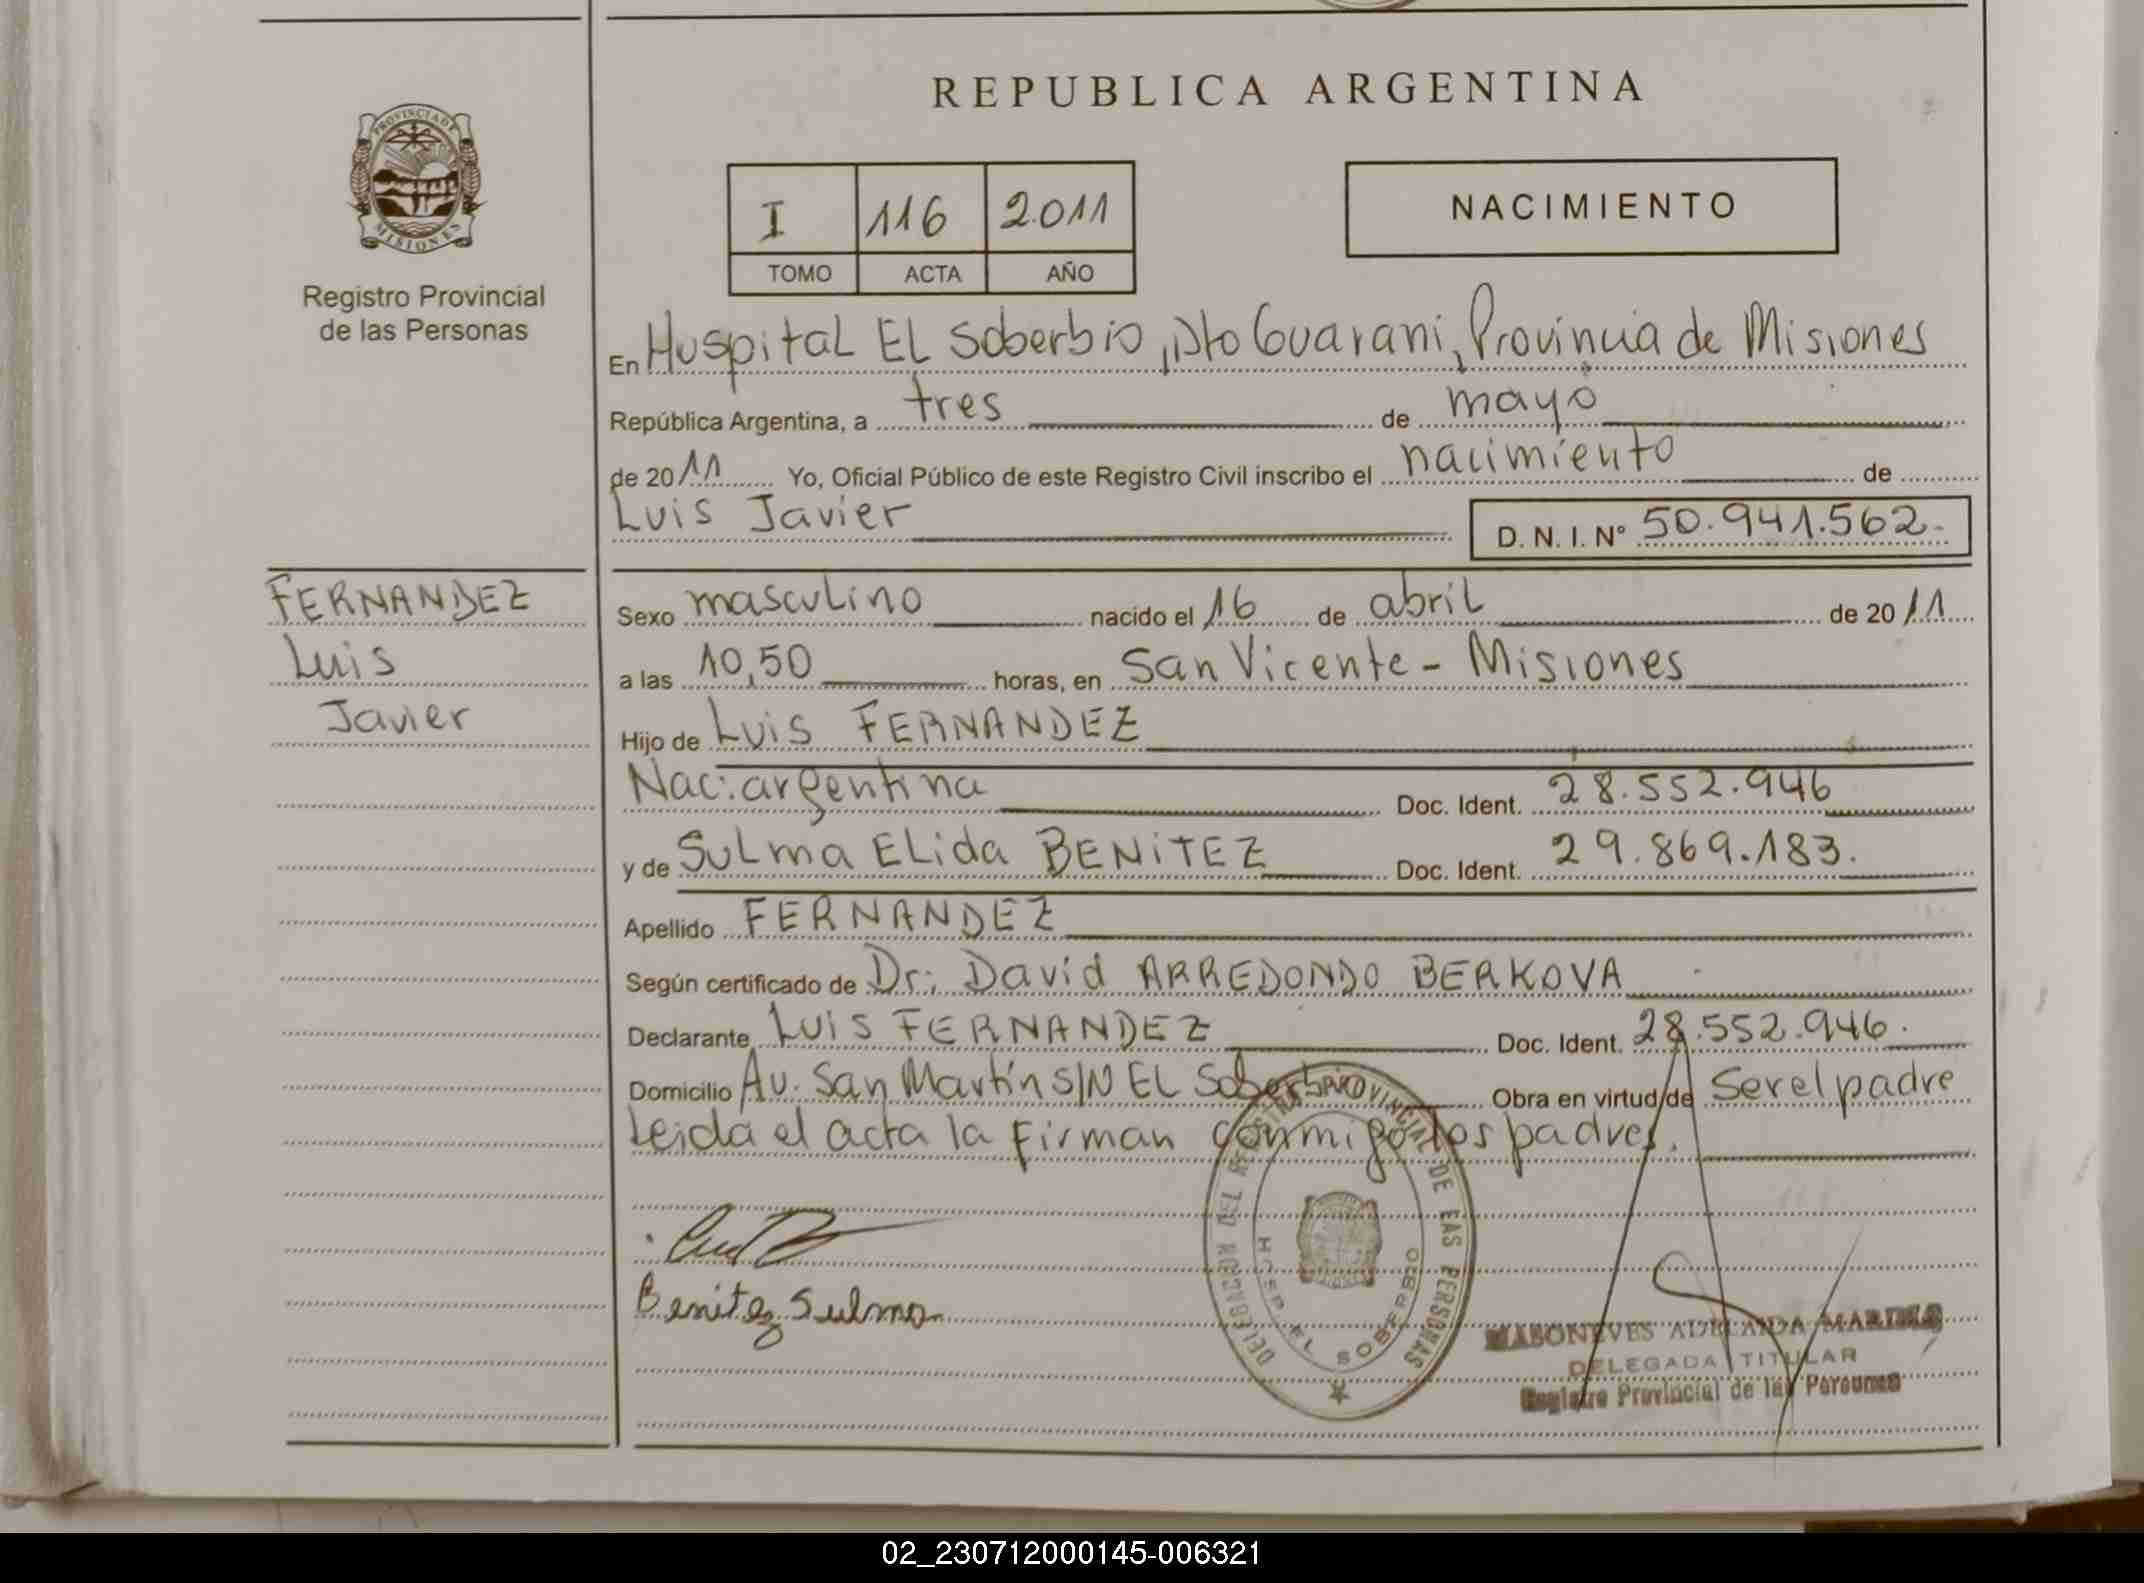 REPUBLICA ARGENTINA
PROVINCIA DE
MISIONES
Registro Provincial
de las Personas
I 116 2.011
TOMO ACTA AÑO
NACIMIENTO
En Hospital EL Soberbio, Dto Guarani, Provincia de Misiones
República Argentina, a tres de mayo
de 2011 Yo, Oficial Público de este Registro Civil inscribo el nacimiento de
Luis Javier D. N. I. Nº 50.941.562.
FERNANDEZ
Luis
Javier
Sexo masculino nacido el 16 de abril de 2011
a las 10,50 horas, en San Vicente - Misiones
Hijo de Luis FERNANDEZ
Nac: argentina Doc. Ident. 28.552.946
y de SULma ELida BENITEZ Doc. Ident. 29.869.183.
Apellido FERNANDEZ
Según certificado de Dr: David ARREDONDO BERKOVA
Declarante Luis FERNANDEZ Doc. Ident. 28.552.946.
Domicilio Av. San Martín S/N EL Soberbio Obra en virtud de Ser el padre
Leida el acta la firman conmigo los padres.
Benitez Sulma
DELEGACION DEL REGISTRO PROVINCIAL DE LAS PERSONAS
HOSP. EL SOBERBIO
ADELAIDA
DELEGADA TITULAR
Registro Provincial de las Personas
02_230712000145-006321